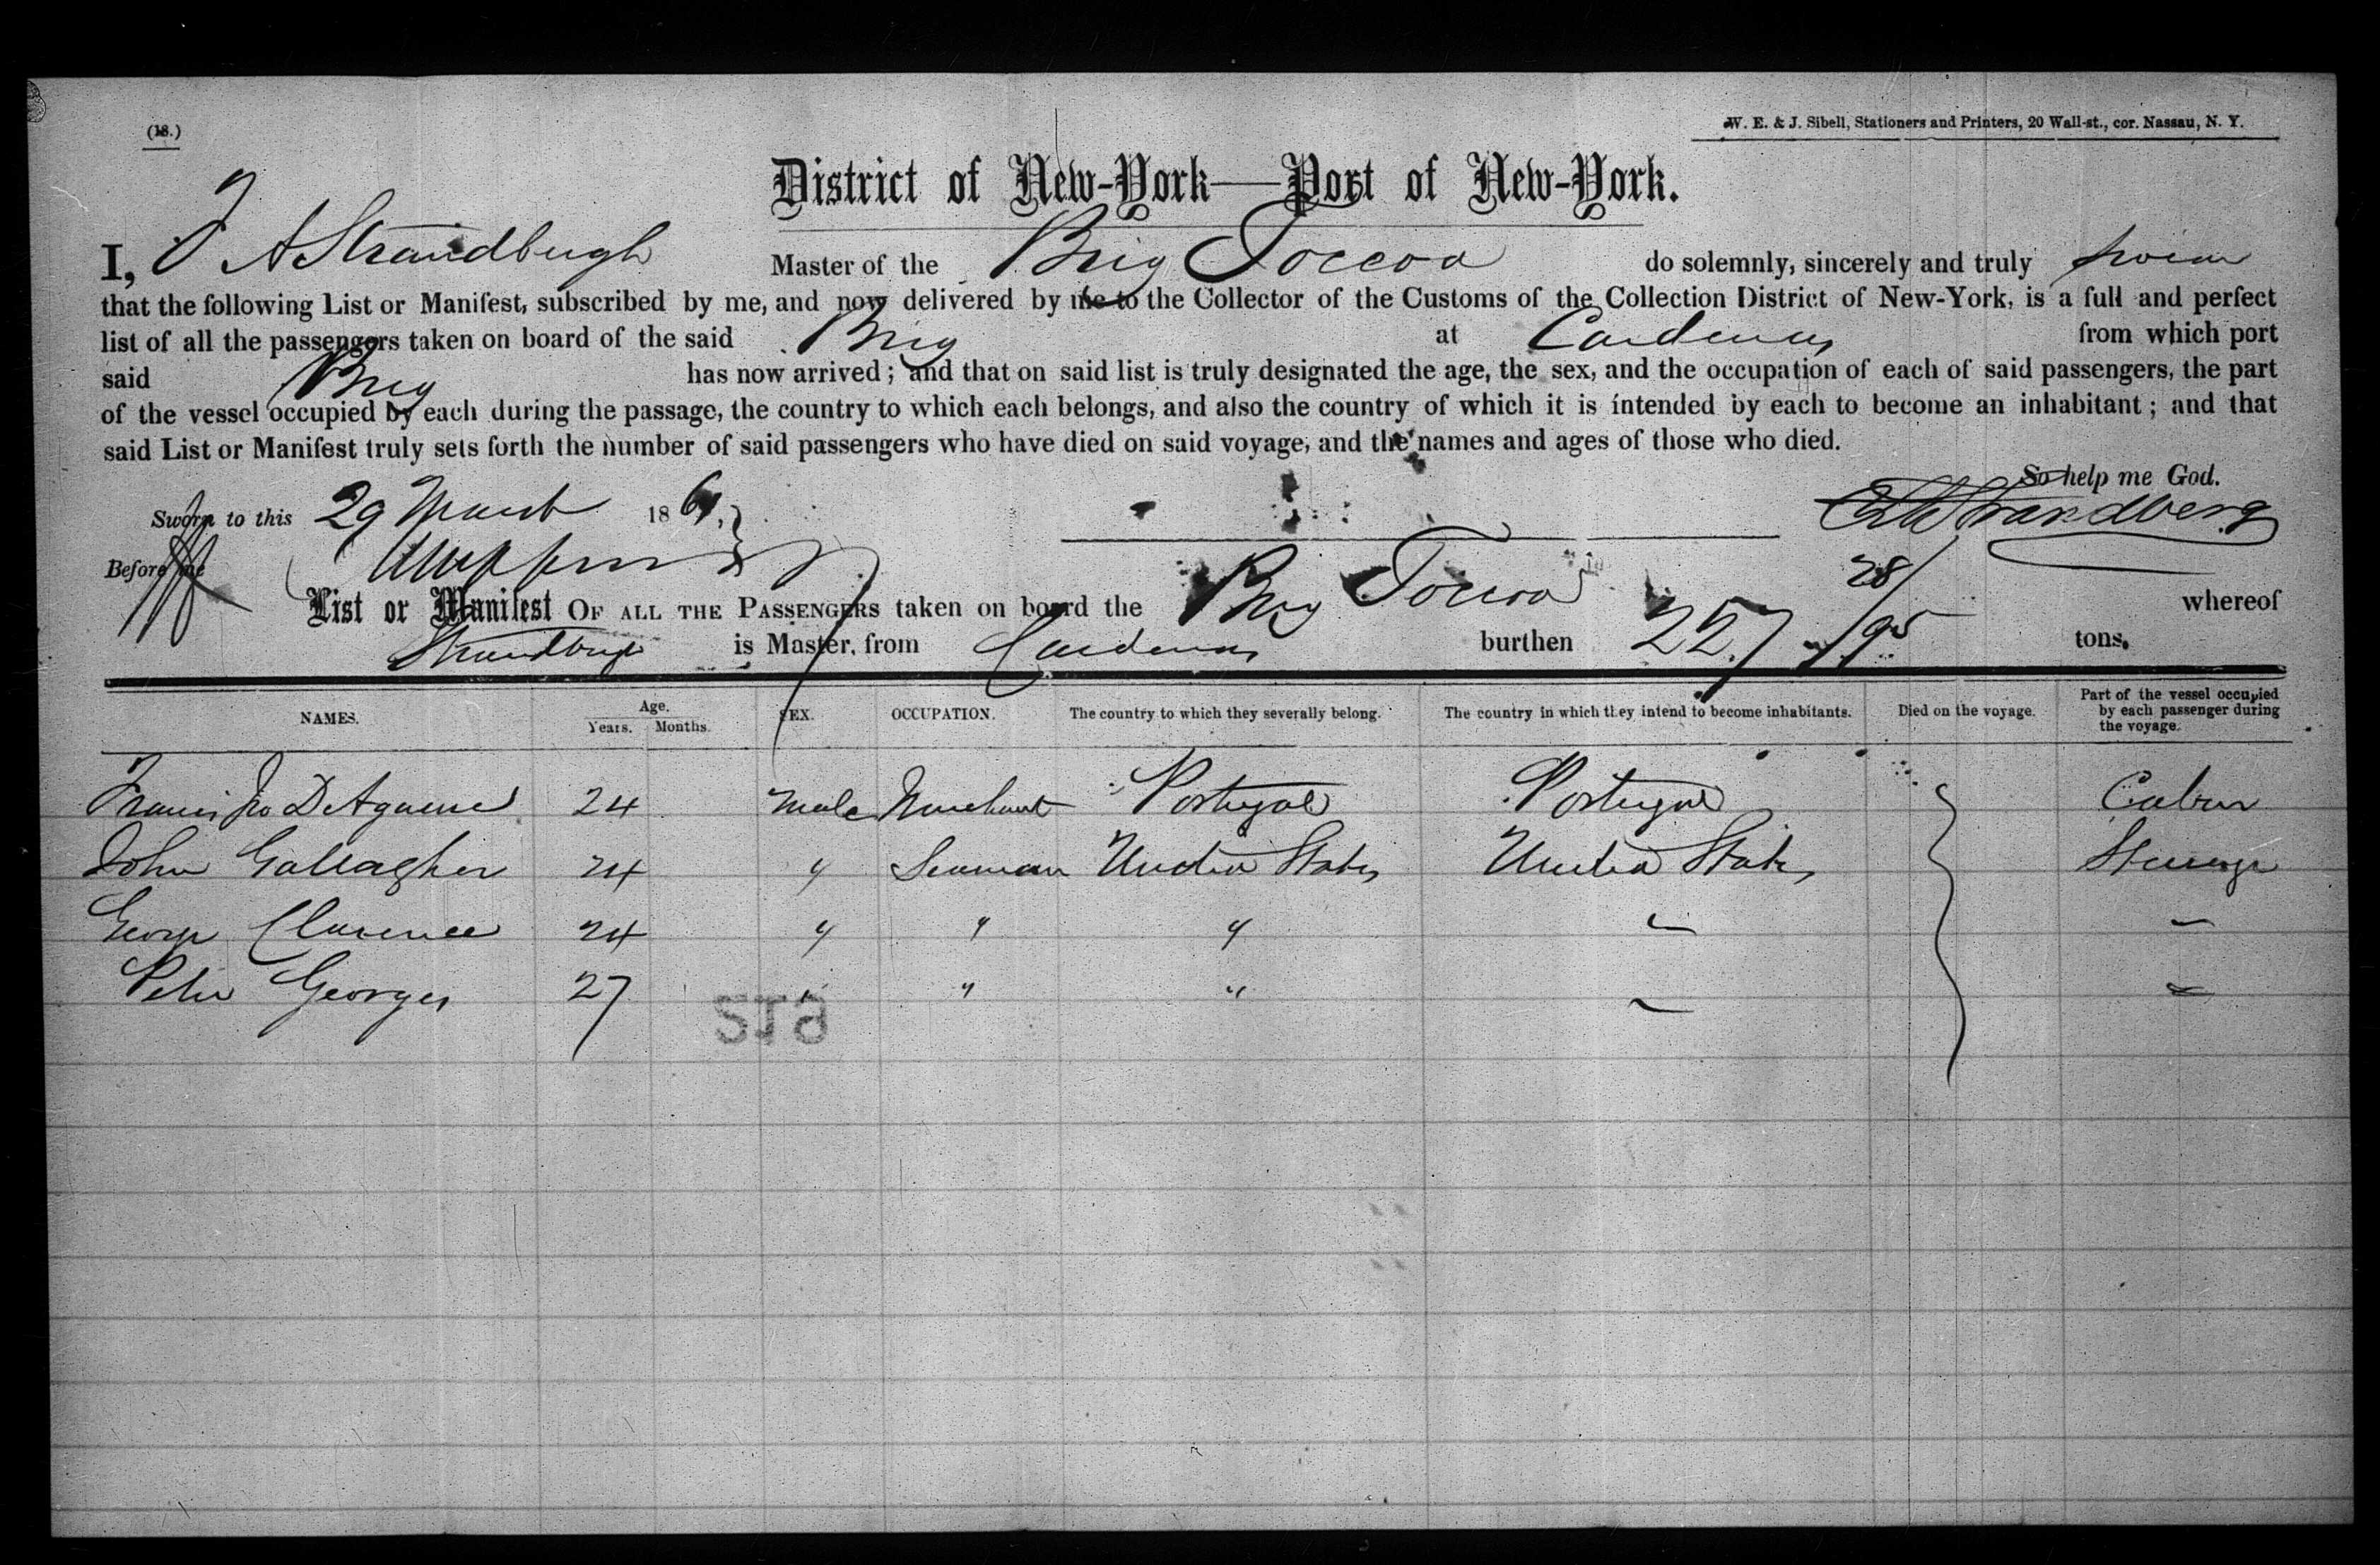 (18.)
W. E. & J. Sibell, Stationers and Printers, 20 Wall-st., cor. Nassau, N. Y.
District of New-York—Port of New-York.
I, A Strandbugh Master of the Brig Toccoa do solemnly, sincerely and truly
that the following List or Manifest, subscribed by me, and now delivered by me to the Collector of the Customs of the Collection District of New-York, is a full and perfect
list of all the passengers taken on board of the said Brig at Cardenas from which port
said Brig has now arrived; and that on said list is truly designated the age, the sex, and the occupation of each of said passengers, the part
of the vessel occupied by each during the passage, the country to which each belongs, and also the country of which it is intended by each to become an inhabitant; and that
said List or Manifest truly sets forth the number of said passengers who have died on said voyage, and the names and ages of those who died.
So help me God.
Sworn to this 29 March 1861. Strandberg
Before me
List or Manifest OF ALL THE PASSENGERS taken on board the Brig Toccoa whereof
Strandbugh is Master, from Cardenas burthen 227 28/95 tons.
NAMES. Age. Years. Months. SEX. OCCUPATION. The country to which they severally belong. The country in which they intend to become inhabitants. Died on the voyage. Part of the vessel occupied by each passenger during the voyage.
24 Male Merchant Portugal Portugal Cabin
John Gallagher 24 " Seaman United States United States Steerage
George Clarence 24 " " " " "
Peter Georges 27 " " " " "